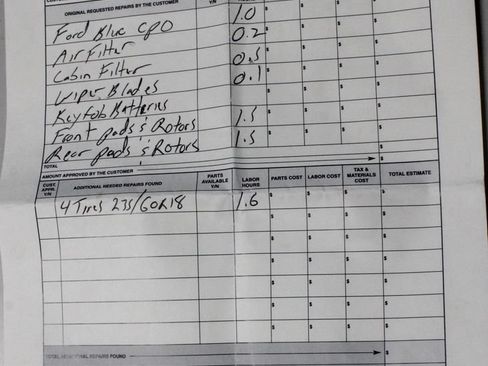 ORIGINAL REQUESTED REPAIRS BY THE CUSTOMER Y/N HOURS COST COST COST
Ford Blue CPO 1.0 $ $ $ $
Air Filter 0.2 $ $ $ $
Cabin Filter 0.5 $ $ $ $
Wiper Blades 0.1 $ $ $ $
Key fob Batteries $ $ $ $
Front pads & Rotors 1.5 $ $ $ $
Rear pads & Rotors 1.5 $ $ $ $
TOTAL $
AMOUNT APPROVED BY THE CUSTOMER $
CUST. APPR. Y/N ADDITIONAL NEEDED REPAIRS FOUND PARTS AVAILABLE Y/N LABOR HOURS PARTS COST LABOR COST TAX & MATERIALS COST TOTAL ESTIMATE
4 Tires 235/60R18 1.6 $ $ $ $
$ $ $ $
$ $ $ $
$ $ $ $
$ $ $ $
$ $ $ $
$ $ $ $
TOTAL ADDITIONAL REPAIRS FOUND $